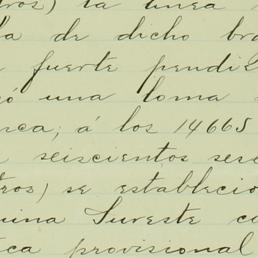 tros) la línea
da de dicho bra
fuerte pendie
una loma
nca; á los 14665
seiscientos sese
tros) se establecio
uina Sureste co
ca provisional